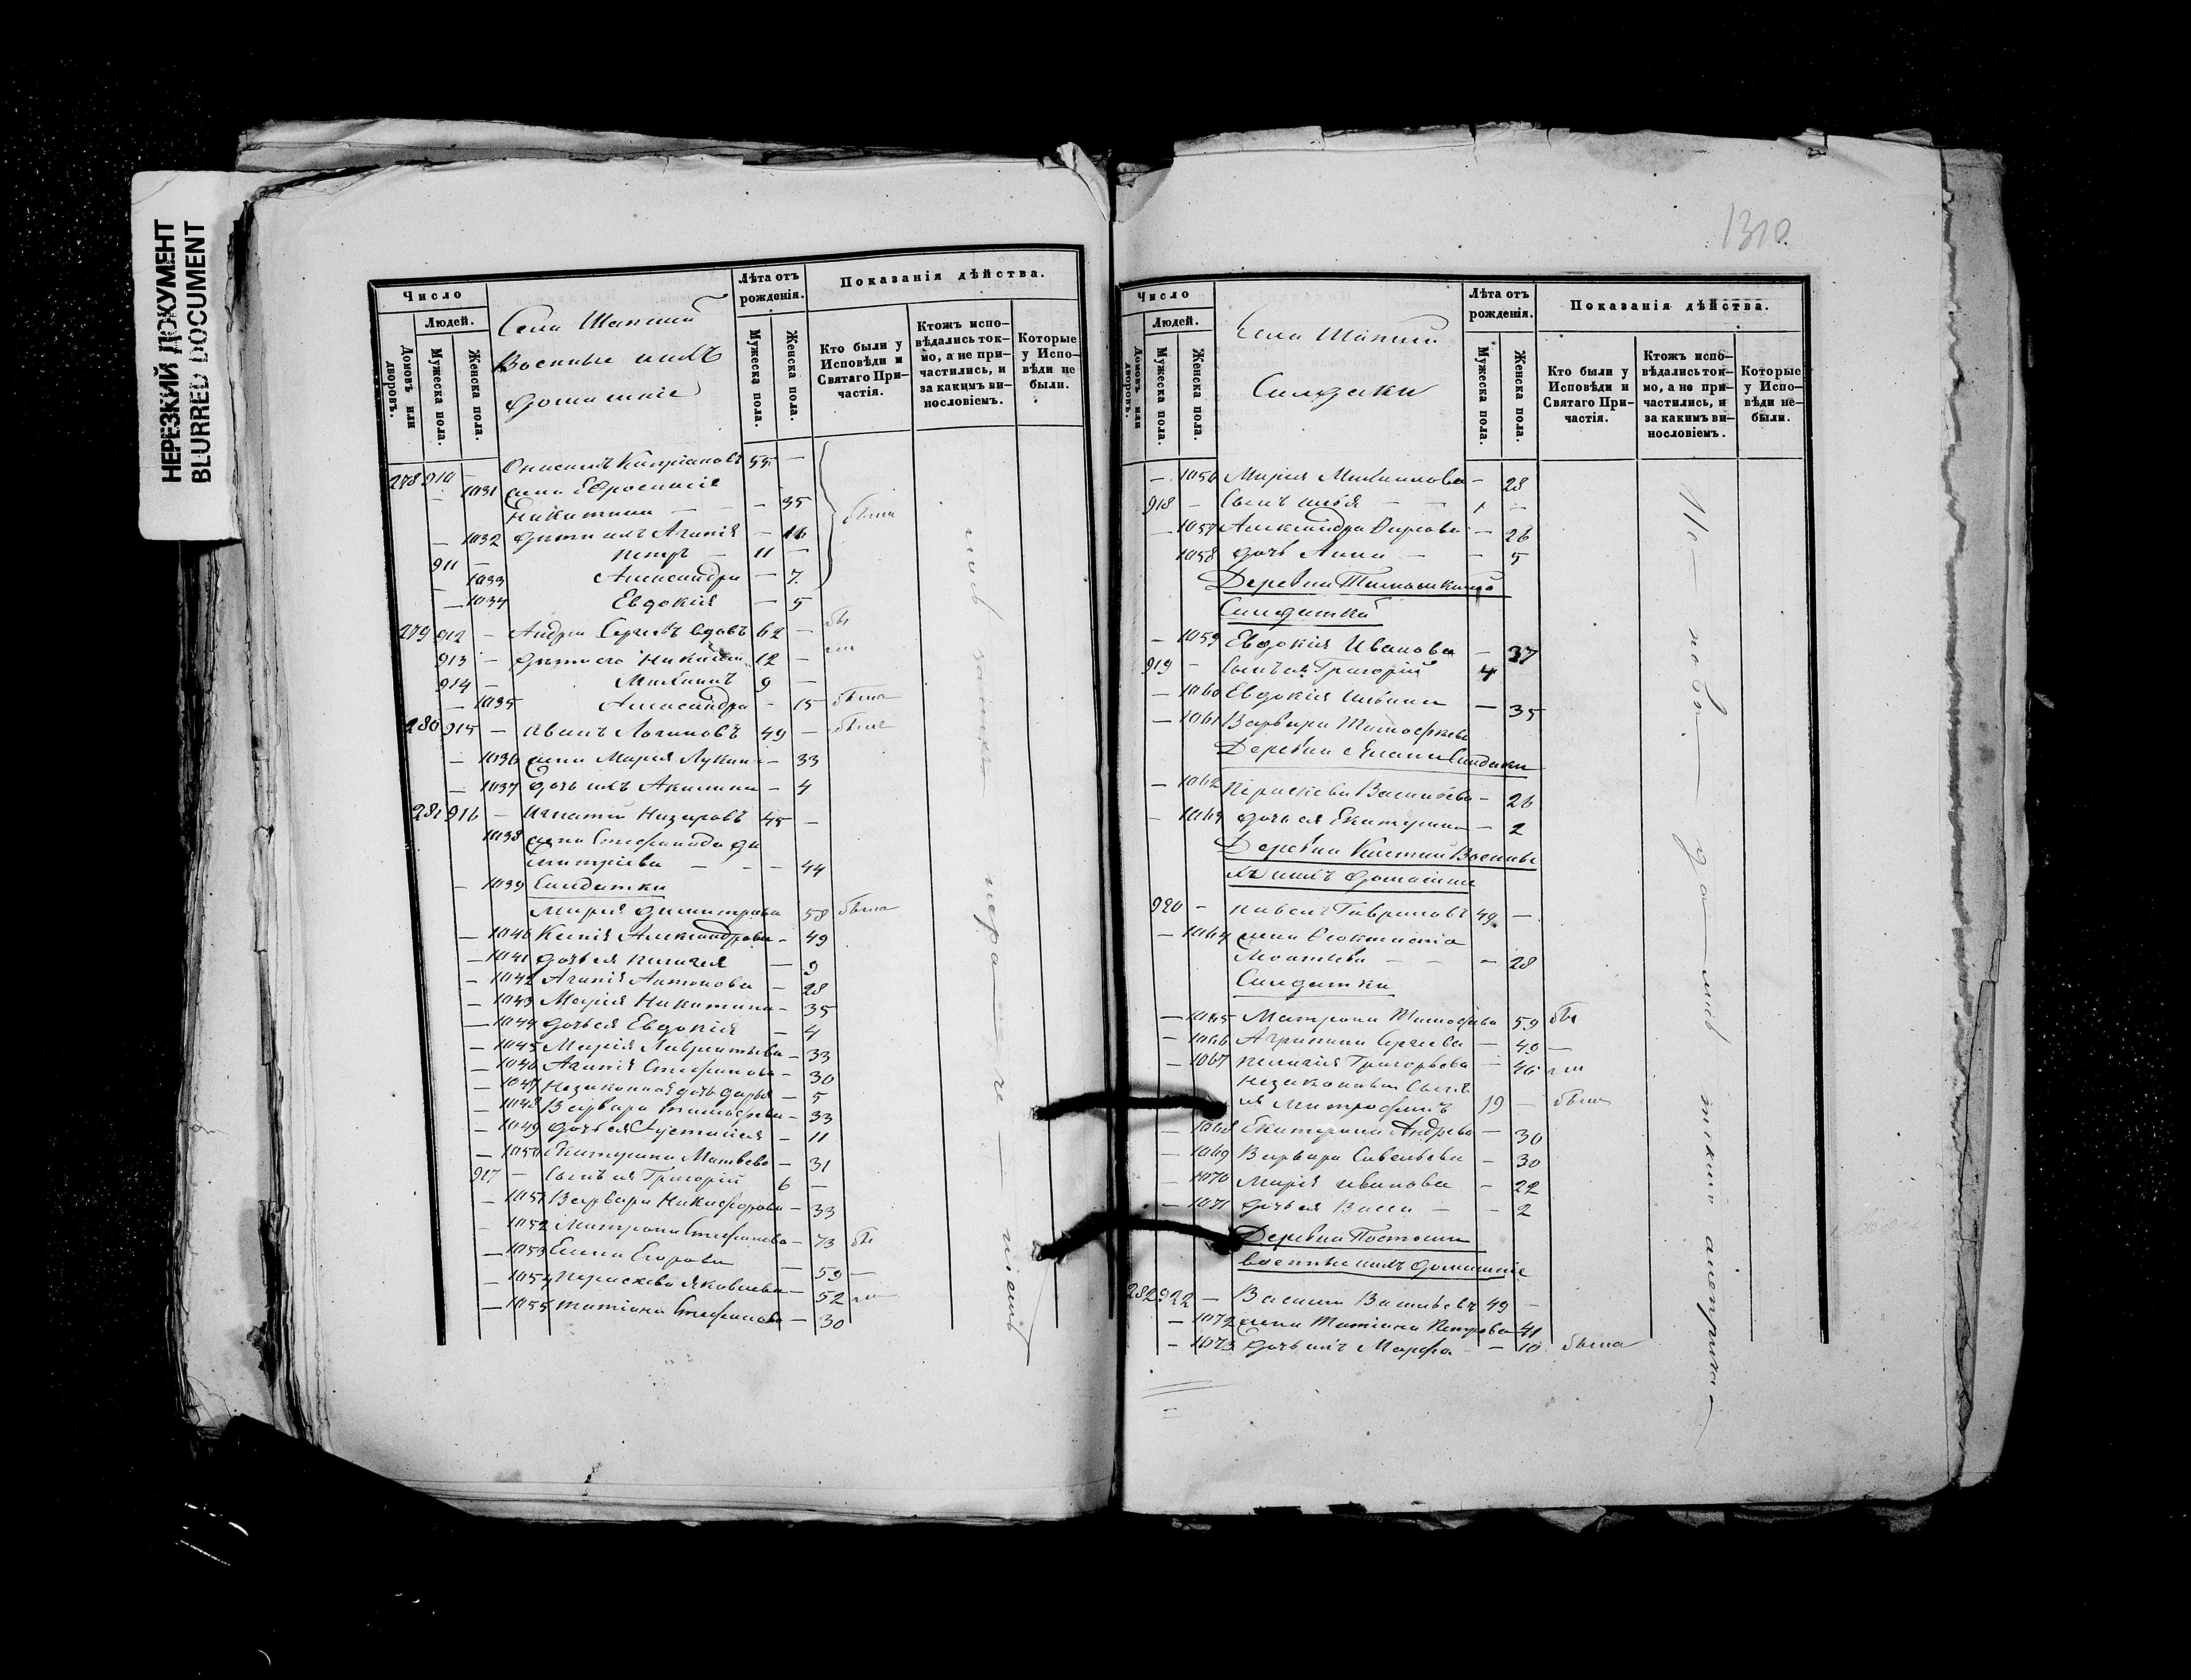 НЕРЕЗКИЙ ДОКУМЕНТ
BLURRED DOCUMENT
Число
Людей.
Домовъ или дворовъ.
Мужеска пола.
Женска пола.
Села
Военные ихъ
домашніе
Лѣта отъ рожденія.
Мужеска пола.
Женска пола.
Показанія дѣйства.
Кто были у Исповѣди и Святаго Причастія.
Ктожъ исповѣдались токмо, а не причастились, и за какимъ винословіемъ.
Которые у Исповѣди не были.
278 910 — 55 —
1031 жена Евфросинія
Никитина — — 35
— 1032 дѣти ихъ Агапія — 16
911 — Петръ — 11 —
1033 Александра — 7
— 1034 Евдокія — 5
279 912 — Андрей Сергѣевъ вдовъ 62 —
913 — дѣти его 12 —
914 — Михаилъ 9 —
— 1035 Александра — 15 была
280 915 — Логиновъ 49 —
— 1036 жена Марія Лукина — 33
— 1037 дочь ихъ Акилина — 4
281 916 — Игнатій Назаровъ 45 —
1038 жена Стефанида Ди
митріева — — — 44
— 1039 Солдатки
Марія Димитріева 58 была
— 1040 Ксенія Александрова — 49
— 1041 дочь ея Пелагея — 9
— 1042 Агапія Антонова — 28
— 1043 Марія Никитина — 35
— 1044 дочь ея Евдокія — 4
— 1045 Марія Лаврентьева — 33
— 1046 Агапія Стефанова — 30
— 1047 Незаконная дочь Дарья — 5
— 1048 Варвара Тимофеева — 33
— 1049 дочь ея Іустинія — 11
— 1050 Екатерина Матвѣева — 31
917 — Сынъ ея Григорій 6 —
— 1051 Варвара Никифорова — 33
— 1052 Матрона Стефанова — 73
— 1053 Елена Егорова — 59
— 1054 Параскева Яковлева — 52
— 1055 Татіана Стефанова — 30
1310
Число
Людей.
Домовъ или дворовъ.
Мужеска пола.
Женска пола.
Села
Солдатки
Лѣта отъ рожденія.
Мужеска пола.
Женска пола.
Показанія дѣйства.
Кто были у Исповѣди и Святаго Причастія.
Ктожъ исповѣдались токмо, а не причастились, и за какимъ винословіемъ.
Которые у Исповѣди небыли.
— 1056 Марія Михаилова — 28
918 — Сынъ Илья — 1 —
— 1057 Александра — 26
1058 дочь Анна — — 5
Деревни
Солдатки
— 1059 Евдокія Иванова — 37
919 — Сынъ ея Григорій 4
— 1060 Евдокія Ильина — 35
— 1061 Варвара Тимофеева
Деревни Солдатки
— 1062 Параскева Васильева — 26
— 1063 дочь ея Екатерина — 2
Деревни Военные
ихъ домашніе
920 — Гавриловъ 49 —
— 1064 жена Феоктиста
— — 28
Солдатки
— 1065 Матрона Тимофеева 59
— 1066 Агрипина Сергеева — 49
— 1067 Пелагія Григорьева — 46
Незаконный Сынъ
ея Митрофанъ 19 — былъ
— 1068 Екатерина Андреева — 30
— 1069 Варвара Савельева — 30
— 1070 Марія Иванова — 22
— 1071 дочь ея Васса — — 2
Деревни
военные ихъ домашніе
282 922 — Василій Васильевъ 49 —
— 1072 жена Татіана Петрова 41
— 1073 дочь ихъ Марфа — 10 была